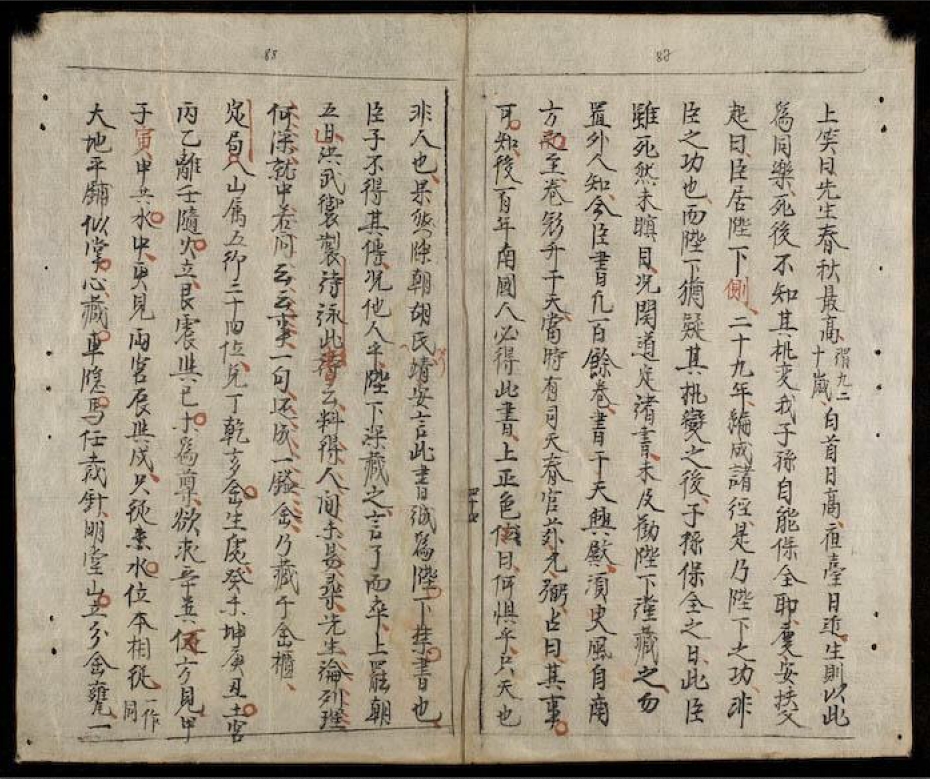 上笑曰先生春秋最高謂九二十歲白首日高夜臺日近生則以此
為同樂死後不知其机变我子孫自能保全耶慶安扶父
起曰臣居陛下側二十九年編成諸径是乃陛下之功非
臣之功也而陛下猶疑其机變之後子孫保全之日此臣
雖死然未瞋目况開道定渚書未及勸陛下瀅藏之勿
置外人知今臣書凢百餘卷書干天興厥湏臾風自南
方至卷彩升于天當時有司天春官苏允弼占曰其事
可知後百年南國人必得此書上正色曰何惧乎只天也
四十七
非人也果然隙朝胡氏靖安言此書誠為陛下禁書也
臣子不得其傳况他人乎陛下深藏之言了而卒上罷朝
五日洪武御製诗泳此書云料得人间未易尋先生論列理
何深就中若问云云亊一句还成一鎰金乃藏于金櫃
定局八山属五行二十四位兑丁乾亥金生處癸未坤庚丑土宮
丙乙離壬隨火立艮震與巳木為尊欲求辛巽何方見甲
子寅申共水中更見两宮辰與戌只従来水位本相從一作同
大地平鋪似掌心藏車隱馬任裁針明堂山立分金甕一
88
87